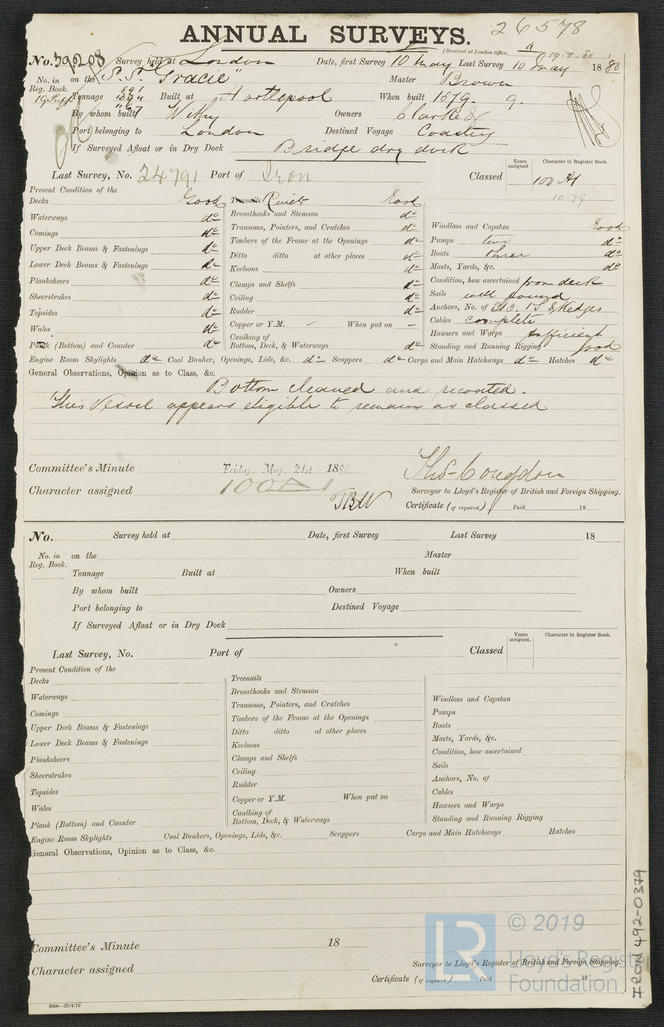 26578
ANNUAL SURVEYS.
(Received at London Office,
No. 39208 Survey held at London Date, first Survey 10 May Last Survey 10 May 1880
No. in on the S.S. "Gracie" Master Brown
Reg. Book.
Tonnage Built at Hartlepool When built 1879. 9.
By whom built Withy Owners Clarke &
Port belonging to London Destined Voyage Coasting
If Surveyed Afloat or in Dry Dock Bridge dry dock
Last Survey, No. 24791 Port of Iron Classed
Years assigned. Character in Register Book.
100 A1
10-79
Present Condition of the
Decks Good Treenails Rivets Good
Waterways do Breasthooks and Stemson do
Comings do Transoms, Pointers, and Crutches do Windlass and Capstan Good
Upper Deck Beams & Fastenings do Timbers of the Frame at the Openings do Pumps two do
Lower Deck Beams & Fastenings do Ditto ditto at other places do Boats three do
Planksheers do Keelsons do Masts, Yards, &c. do
Sheerstrakes do Clamps and Shelfs do Condition, how ascertained from deck
Topsides do Ceiling do Sails well found
Wales do Rudder do Anchors, No. of
Plank (Bottom) and Counter do Copper or Y.M. – When put on – Cables complete
Caulking of Bottom, Deck, & Waterways do Hawsers and Warps sufficient
Standing and Running Rigging good
Engine Room Skylights do Coal Bunker, Openings, Lids, &c. do Scuppers do Cargo and Main Hatchways do Hatches do
General Observations, Opinion as to Class, &c.
Bottom cleaned and recoated.
This Vessel appears eligible to remain as classed
Committee's Minute Friday, May 21st 1880
Character assigned 100A1
Thos Congdon
Surveyor to Lloyd's Register of British and Foreign Shipping.
Certificate (if required) Paid 18
No. Survey held at Date, first Survey Last Survey 18
No. in on the Master
Reg. Book.
Tonnage Built at When built
By whom built Owners
Port belonging to Destined Voyage
If Surveyed Afloat or in Dry Dock
Last Survey, No. Port of Classed
Years assigned. Character in Register Book.
Present Condition of the
Decks Treenails
Waterways Breasthooks and Stemson
Comings Transoms, Pointers, and Crutches Windlass and Capstan
Upper Deck Beams & Fastenings Timbers of the Frame at the Openings Pumps
Lower Deck Beams & Fastenings Ditto ditto at other places Boats
Planksheers Keelsons Masts, Yards, &c.
Sheerstrakes Clamps and Shelfs Condition, how ascertained
Topsides Ceiling Sails
Wales Rudder Anchors, No. of
Plank (Bottom) and Counter Copper or Y.M. When put on Cables
Caulking of Bottom, Deck, & Waterways Hawsers and Warps
Standing and Running Rigging
Engine Room Skylights Coal Bunkers, Openings, Lids, &c. Scuppers Cargo and Main Hatchways Hatches
General Observations, Opinion as to Class, &c.
Committee's Minute 18
Character assigned
Surveyor to Lloyd's Register of British and Foreign Shipping.
Certificate (if required) Paid 18
IRON 492-0379
LR
© 2019
Lloyd's Register
Foundation